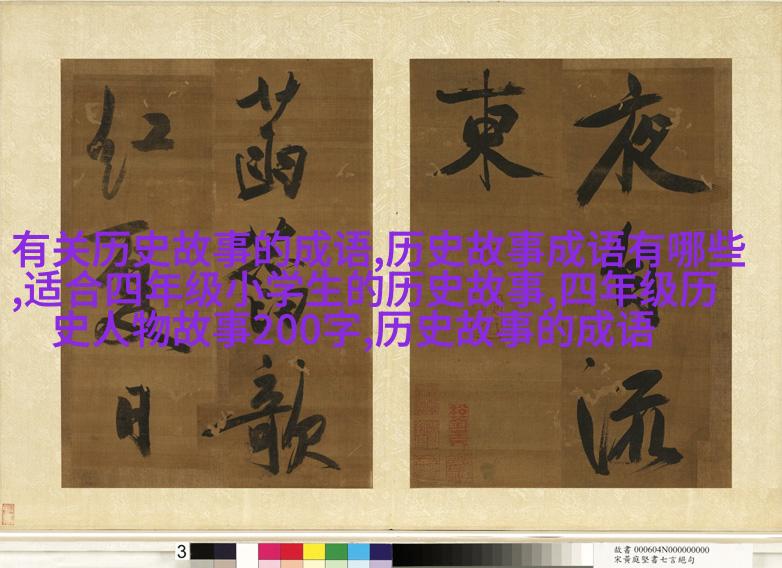 夜 流
東
菡 歌
红 日
有关历史故事的成语,历史故事成语有哪些
,适合四年级小学生的历史故事,四年级历
史人物故事200字,历史故事的成语
3
故書 000604N000000000
宋黃庭堅書七言絕句